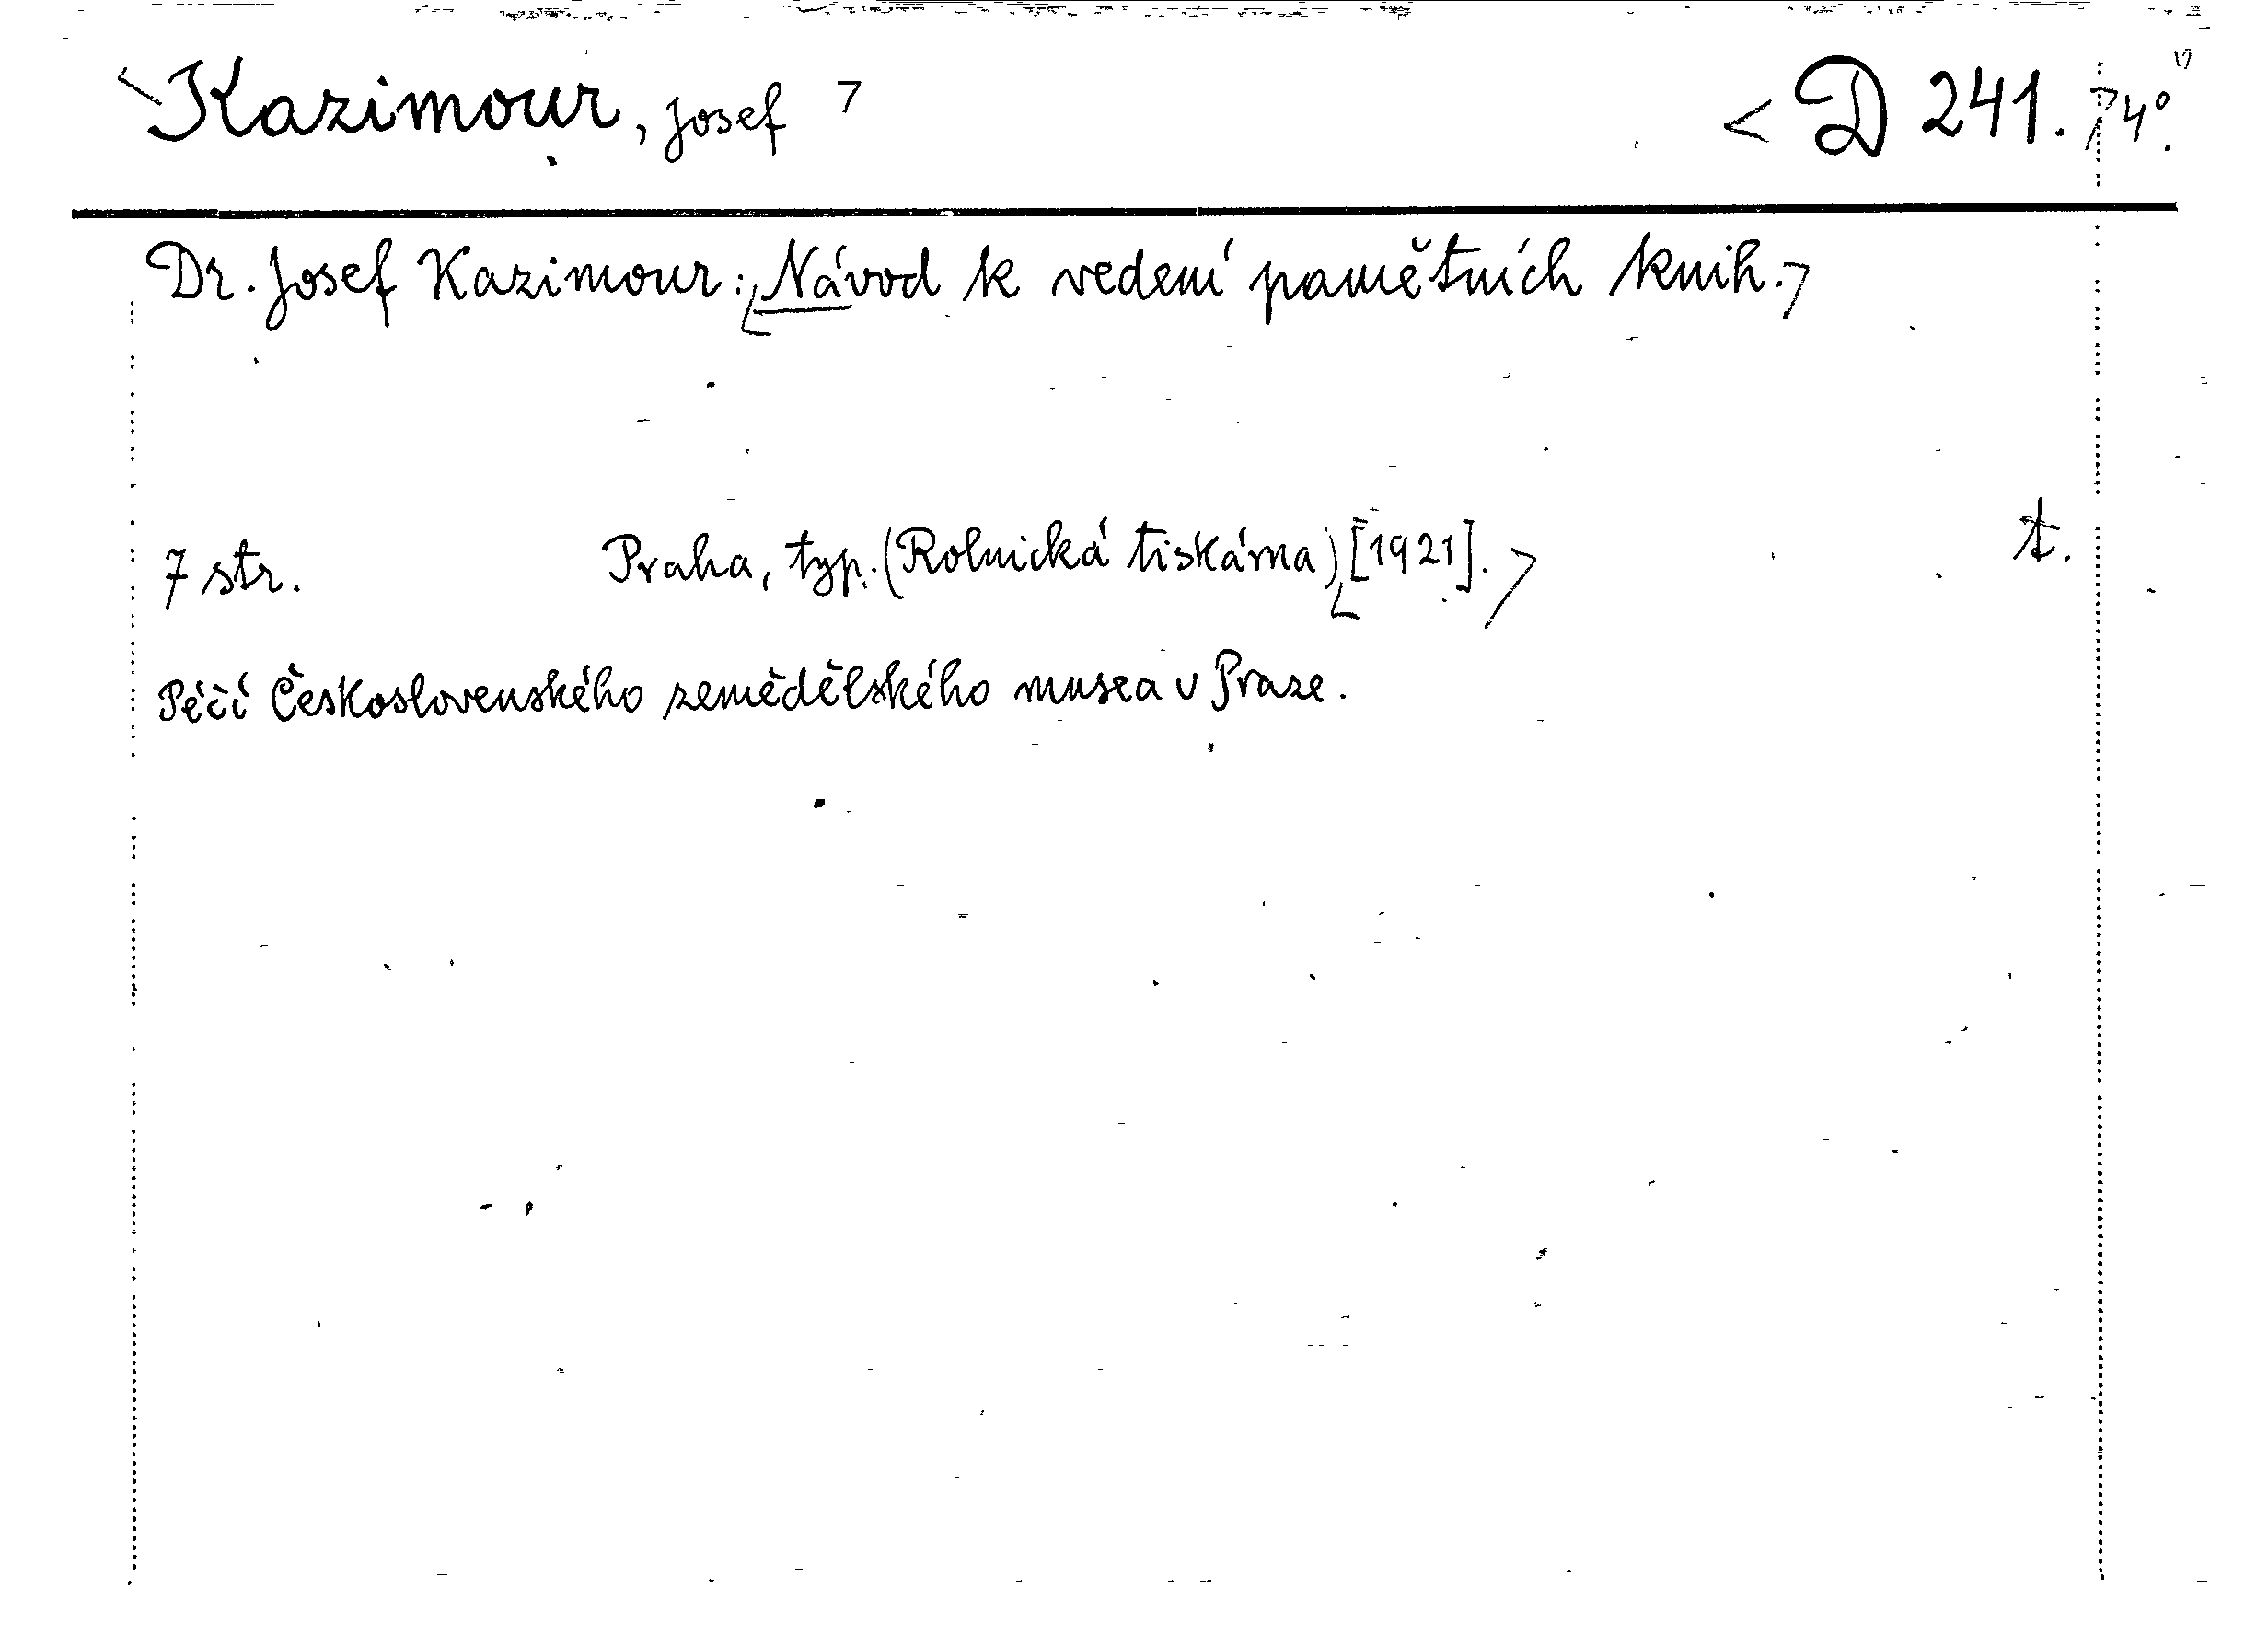 Kazimour, Josef D 241. 4°.
Dr. Josef Kazimour: Návod k vedení pamětních knih.
7 str. Praha, typ. (Rolnická tiskárna) [1921]. t.
Péčí Československého zemědělského musea v Praze.